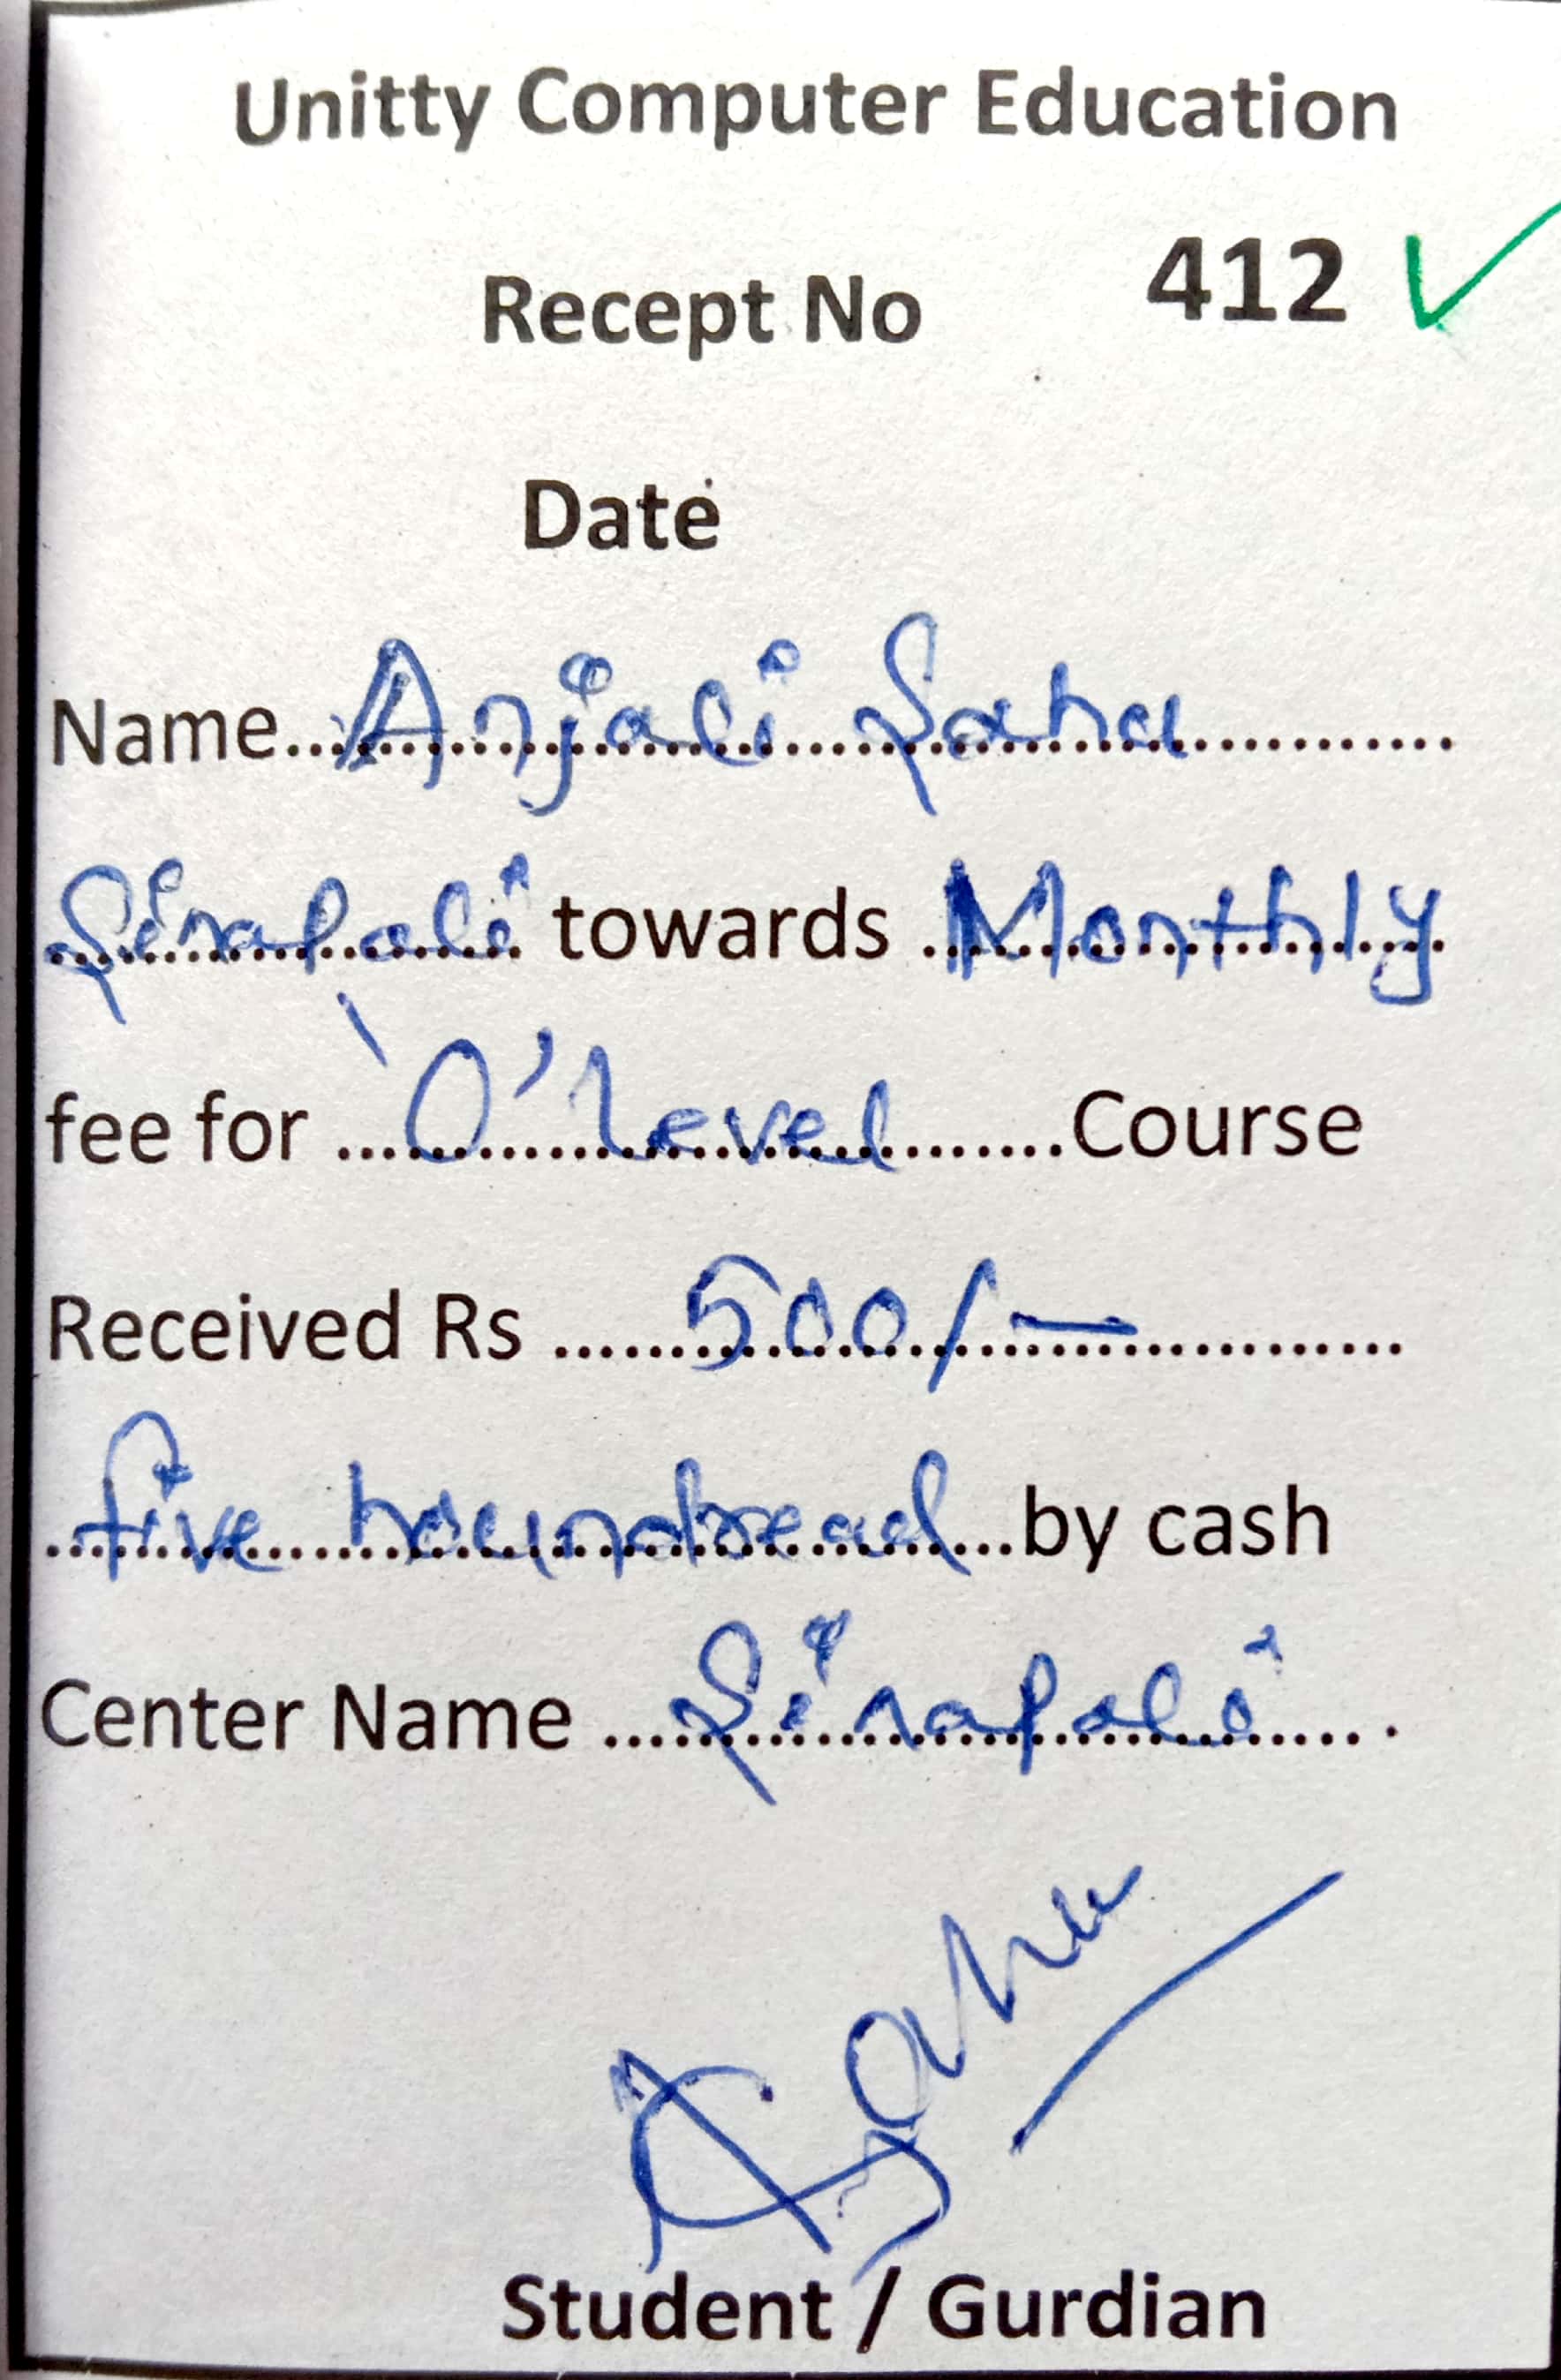 Unitty Computer Education
Recept No 412
Date
Name...Anjali Sahu...
Sinapali towards Monthly
fee for ...'O' level...Course
Received Rs ...500/-...
...five houndread...by cash
Center Name ...Sinapali...
Sahu
Student / Gurdian